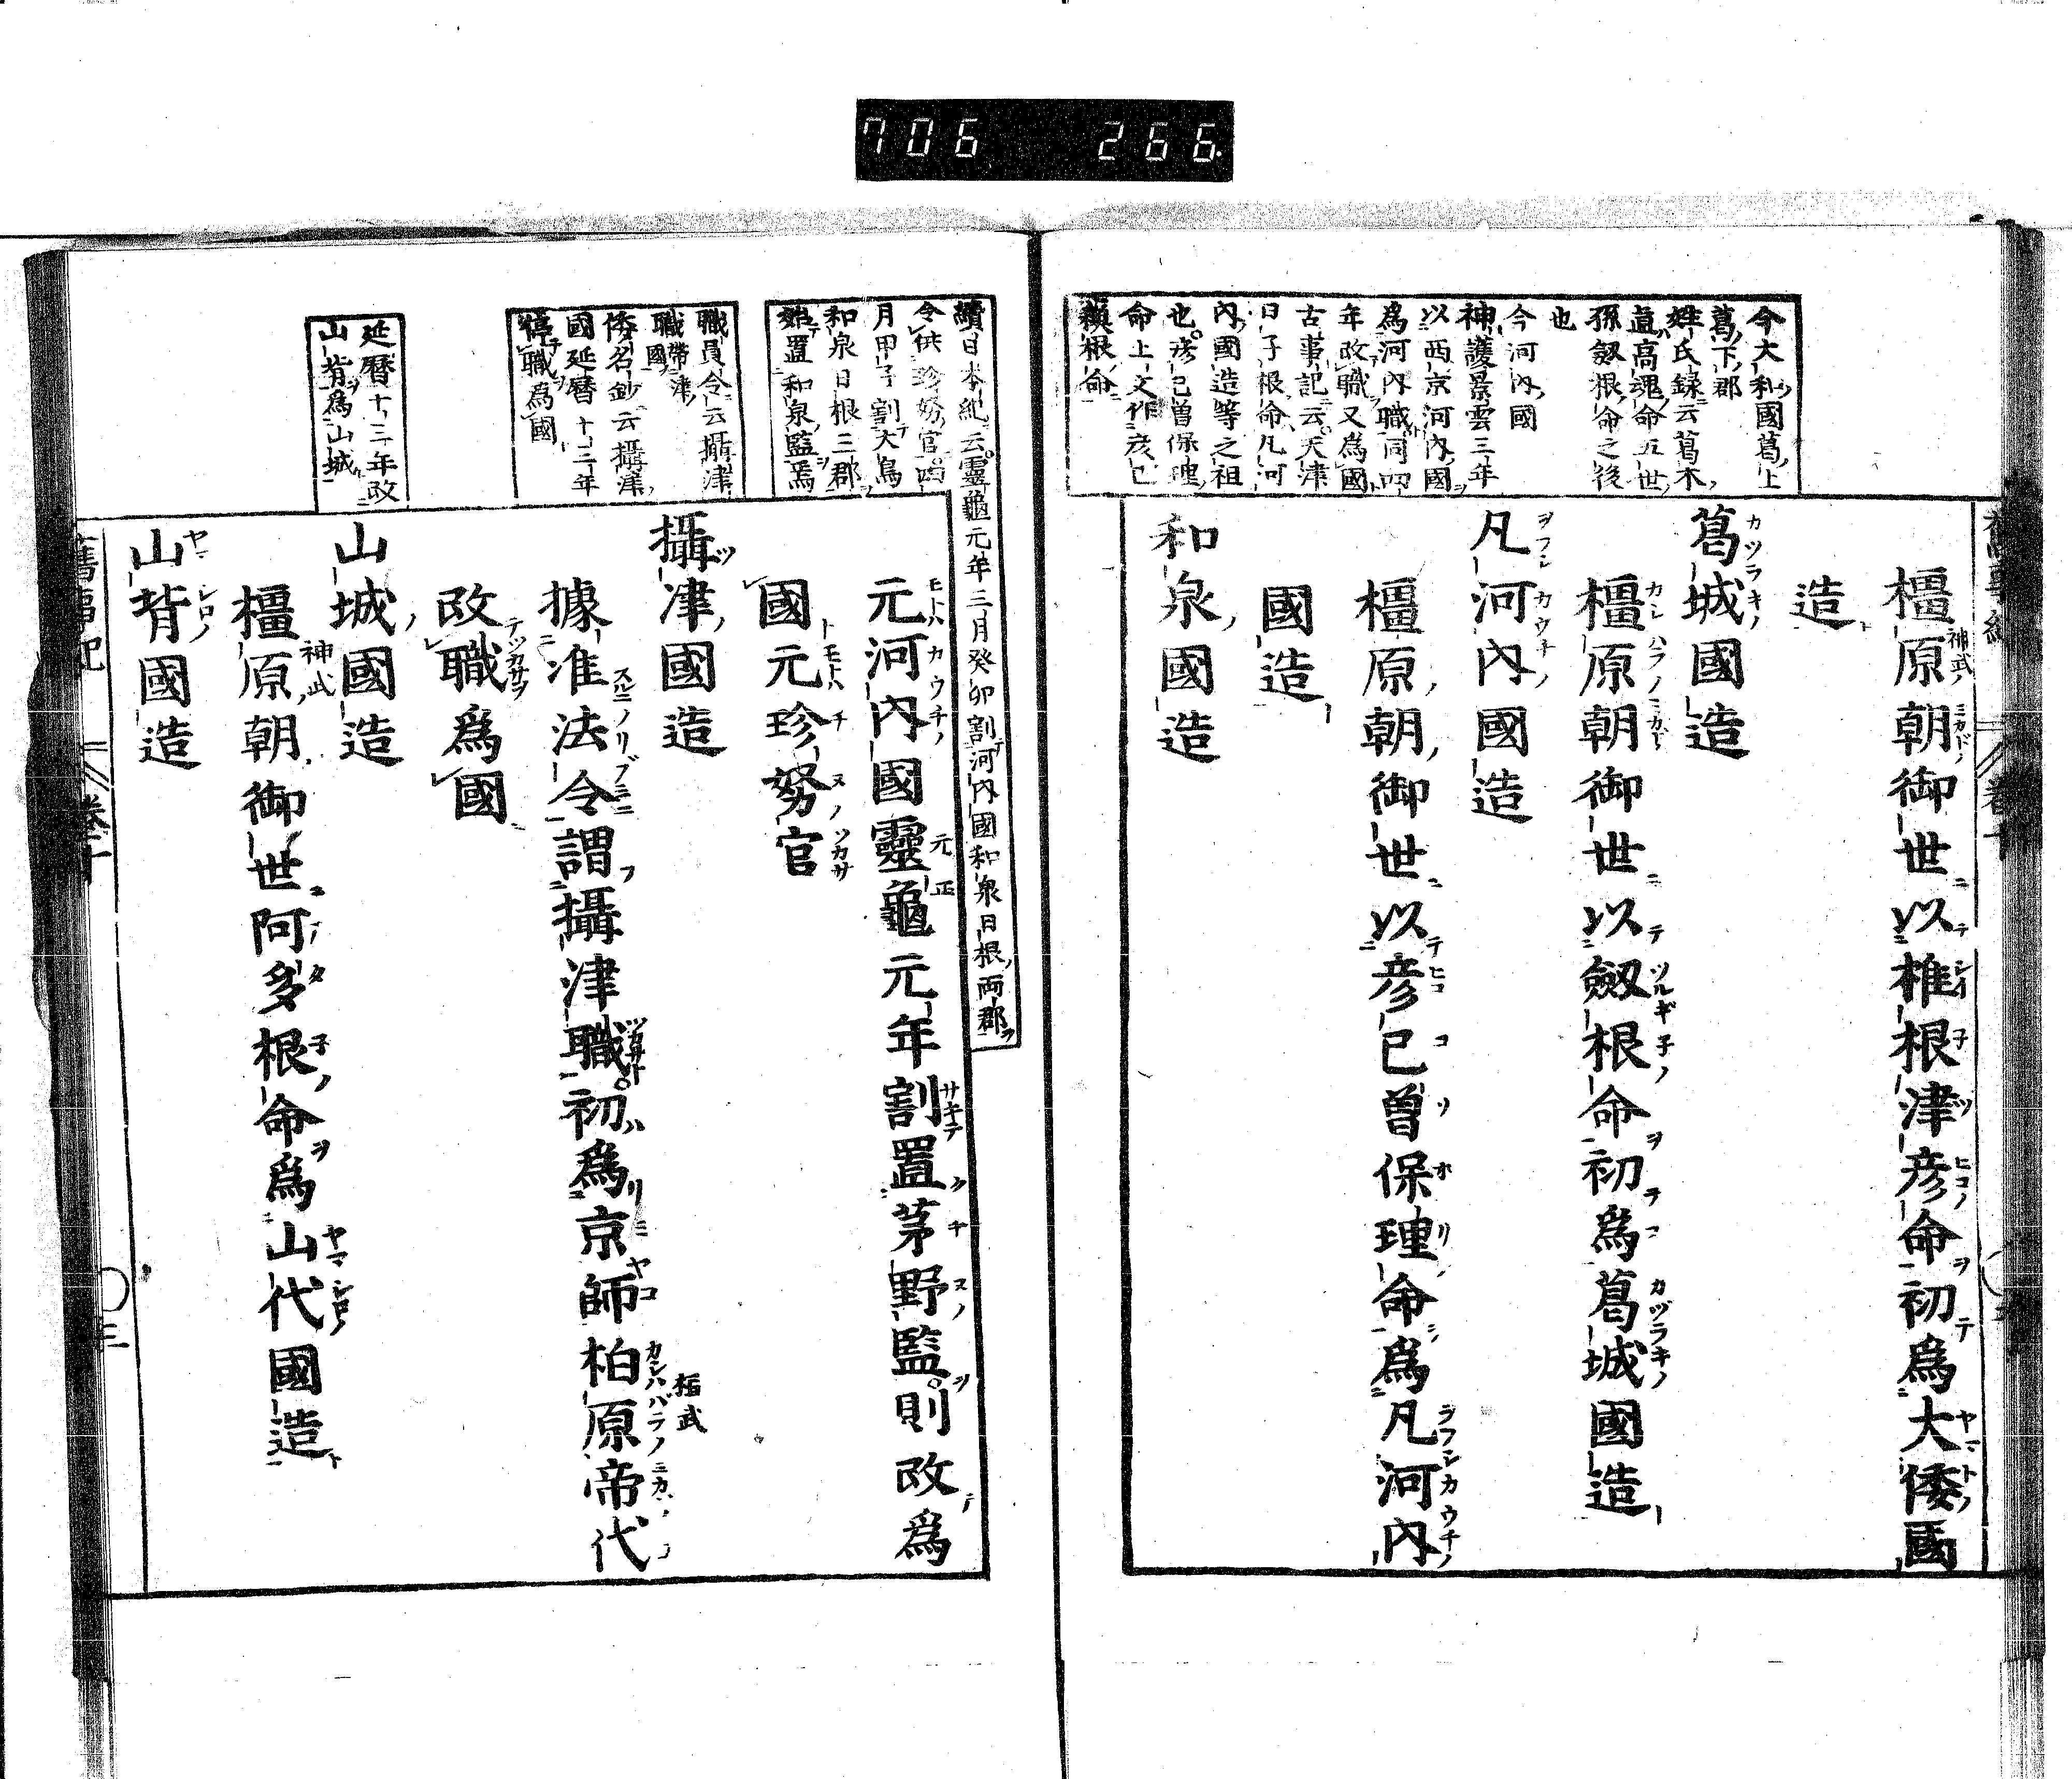 706 266
今大和國葛上
葛下郡
姓氏録云葛木
直高魂命五世
孫劔根命之後
也
今河内國
神護景雲三年
以西京河内國
為河内職同四
年改職又為國
古事記云天津
日子根命凡河
内國造等之祖
也彦已曽保理
命上文作彦己
橿原朝御世以椎根津彦命初爲大倭國
造
葛城國造
橿原朝御世以劔根命初爲葛城國造
凡河内國造
橿原朝御世以彦已曽保理命爲凡河内
國造
和泉國造
續日本紀云靈龜元年三月癸卯割河内國和泉日根両郡
令供珍努官四
月甲子割大鳥
和泉日根三郡
始置和泉監焉
職員令云攝津
職帶津國
倭名鈔云攝津
國延暦十二年
停職為國
延暦十三年改
山背為山城
元河内國靈龜元年割置茅野監則改爲
國元珍努官
攝津國造
據准法令謂攝津職初爲京師柏原帝代
改職爲國
山城國造
橿原朝御世阿多根命爲山代國造
山背國造
舊事紀 卷十 三